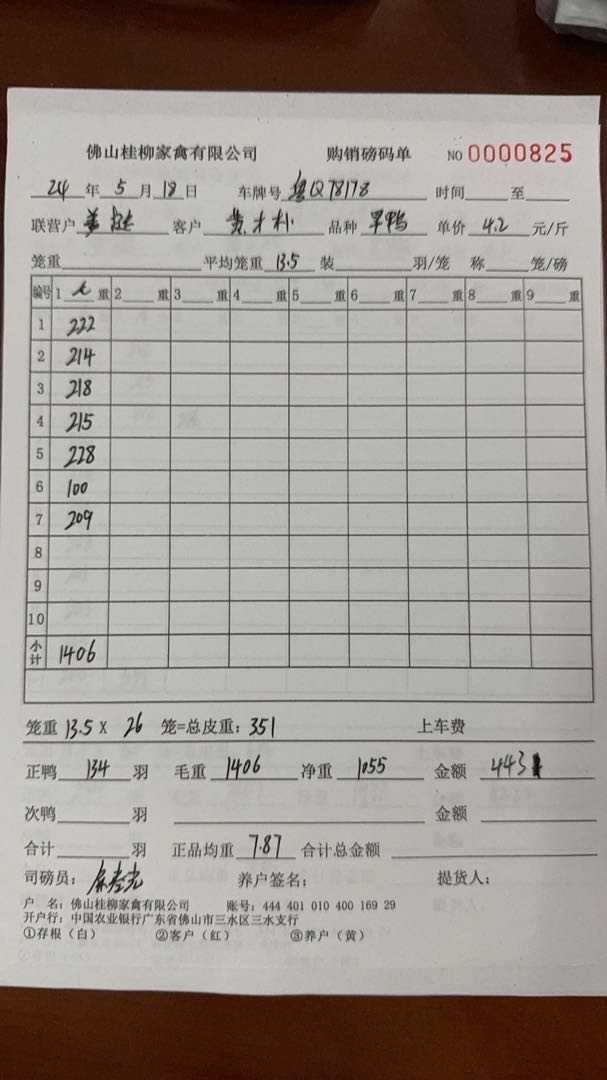 佛山桂柳家禽有限公司 购销磅码单 NO 0000825
24年5月18日 车牌号 粤Q78178 时间 至
联营户 客户 黄才朴 品种 旱鸭 单价 4.2 元/斤
笼重 平均笼重 13.5 装 羽/笼 称 笼/磅
编号 1 重 2 重 3 重 4 重 5 重 6 重 7 重 8 重 9 重
1 222
2 214
3 218
4 215
5 228
6 100
7 209
8
9
10
小计 1406
笼重 13.5 X 26 笼=总皮重: 351 上车费
正鸭 134 羽 毛重 1406 净重 1055 金额 4431
次鸭 羽 金额
合计 羽 正品均重 7.87 合计总金额
司磅员: 养户签名: 提货人:
户 名: 佛山桂柳家禽有限公司 账号: 444 401 010 400 169 29
开户行: 中国农业银行广东省佛山市三水区三水支行
①存根(白) ②客户(红) ③养户(黄)